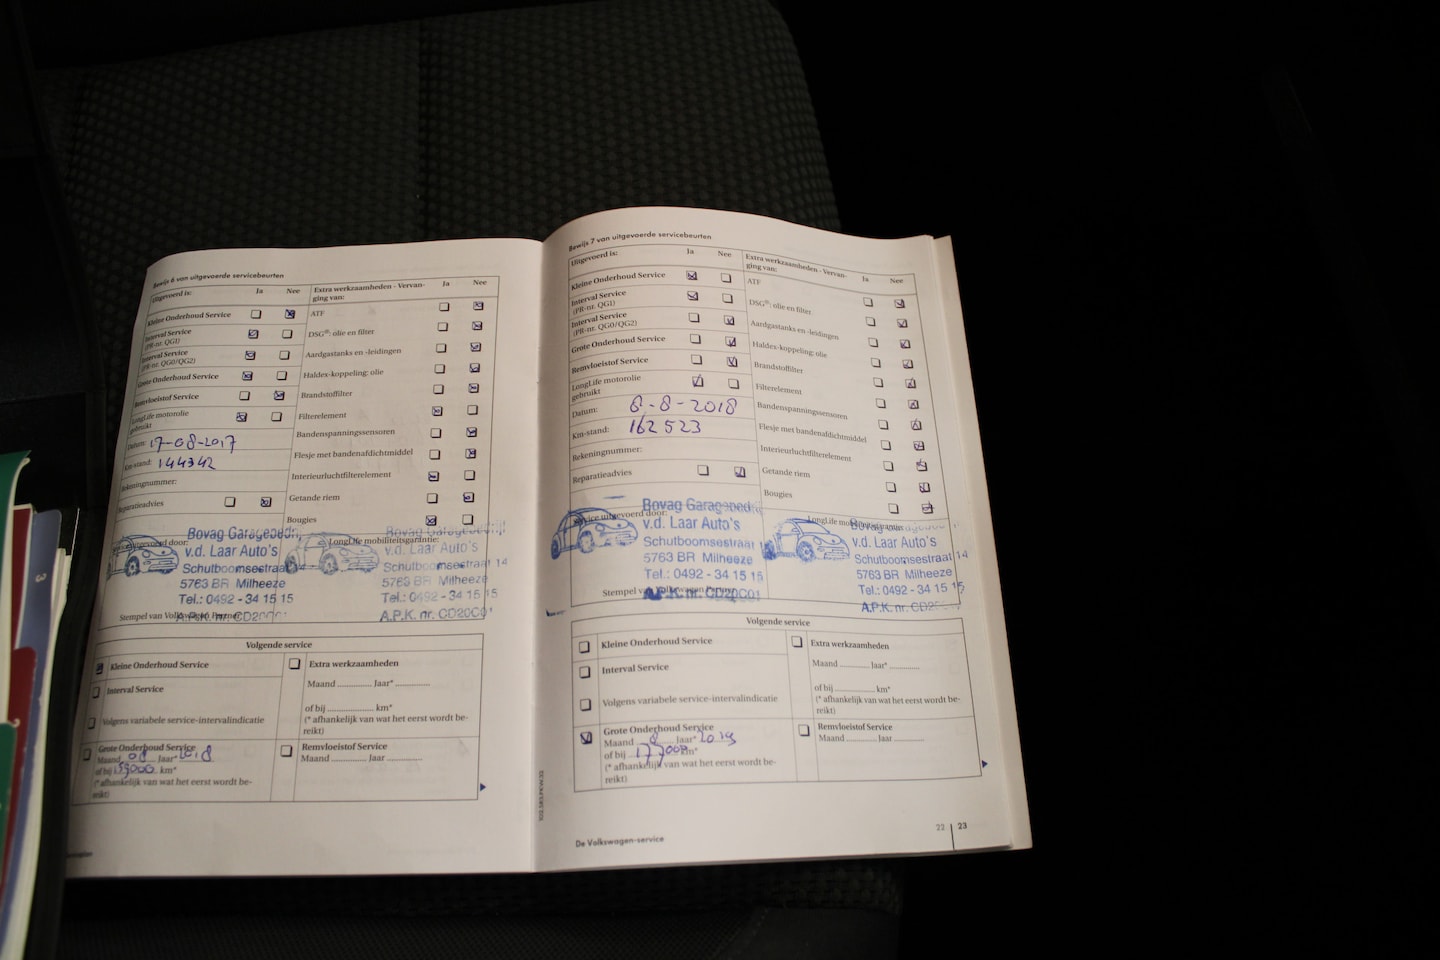 Bewijs 6 van uitgevoerde servicebeurten
Uitgevoerd is: Ja Nee
Kleine Onderhoud Service
Interval Service
(PR-nr. QG1)
Interval Service
(PR-nr. QG0/QG2)
Grote Onderhoud Service
Remvloeistof Service
LongLife motorolie
gebruikt
Datum: 17-08-2017
Km-stand: 144342
Rekeningnummer:
Reparatieadvies
Extra werkzaamheden - Vervan-
ging van: Ja Nee
ATF
DSG®: olie en filter
Aardgastanks en -leidingen
Haldex-koppeling: olie
Brandstoffilter
Filterelement
Bandenspanningssensoren
Flesje met bandenafdichtmiddel
Interieurluchtfilterelement
Getande riem
Bougies
Service uitgevoerd door:
Bovag Garagebedrijf
v.d. Laar Auto's
Schutboomsestraat
5763 BR Milheeze
Tel.: 0492 - 34 15 15
A.P.K. nr. CD20C01
Stempel van Volkswagen Partner
LongLife mobiliteitsgarantie:
Bovag Garagebedrijf
v.d. Laar Auto's
Schutboomsestraat 14
5763 BR Milheeze
Tel.: 0492 - 34 15 15
A.P.K. nr. CD20C01
Volgende service
Kleine Onderhoud Service
Interval Service
Volgens variabele service-intervalindicatie
Grote Onderhoud Service
Maand 08 Jaar* 2018
of bij km*
(* afhankelijk van wat het eerst wordt be-
reikt)
Extra werkzaamheden
Maand .............. Jaar* ..............
of bij ..................... km*
(* afhankelijk van wat het eerst wordt be-
reikt)
Remvloeistof Service
Maand .............. Jaar ..............
Bewijs 7 van uitgevoerde servicebeurten
Uitgevoerd is: Ja Nee
Kleine Onderhoud Service
Interval Service
(PR-nr. QG1)
Interval Service
(PR-nr. QG0/QG2)
Grote Onderhoud Service
Remvloeistof Service
LongLife motorolie
gebruikt
Datum: 8-8-2018
Km-stand: 162523
Rekeningnummer:
Reparatieadvies
Extra werkzaamheden - Vervan-
ging van: Ja Nee
ATF
DSG®: olie en filter
Aardgastanks en -leidingen
Haldex-koppeling: olie
Brandstoffilter
Filterelement
Bandenspanningssensoren
Flesje met bandenafdichtmiddel
Interieurluchtfilterelement
Getande riem
Bougies
Service uitgevoerd door:
Bovag Garagebedr
v.d. Laar Auto's
Schutboomsestraat
5763 BR Milheeze
Tel.: 0492 - 34 15 15
A.P.K. nr. CD20C01
Stempel van Volkswagen Partner
LongLife mobiliteitsgarantie:
Bovag Garagebedrijf
v.d. Laar Auto's
Schutboomsestraat 14
5763 BR Milheeze
Tel.: 0492 - 34 15 15
A.P.K. nr. CD20C01
Volgende service
Kleine Onderhoud Service
Interval Service
Volgens variabele service-intervalindicatie
Grote Onderhoud Service
Maand 8 Jaar* 2019
of bij 177000 km*
(* afhankelijk van wat het eerst wordt be-
reikt)
Extra werkzaamheden
Maand .............. Jaar* ..............
of bij ..................... km*
(* afhankelijk van wat het eerst wordt be-
reikt)
Remvloeistof Service
Maand .............. Jaar ..............
De Volkswagen-service
22 | 23